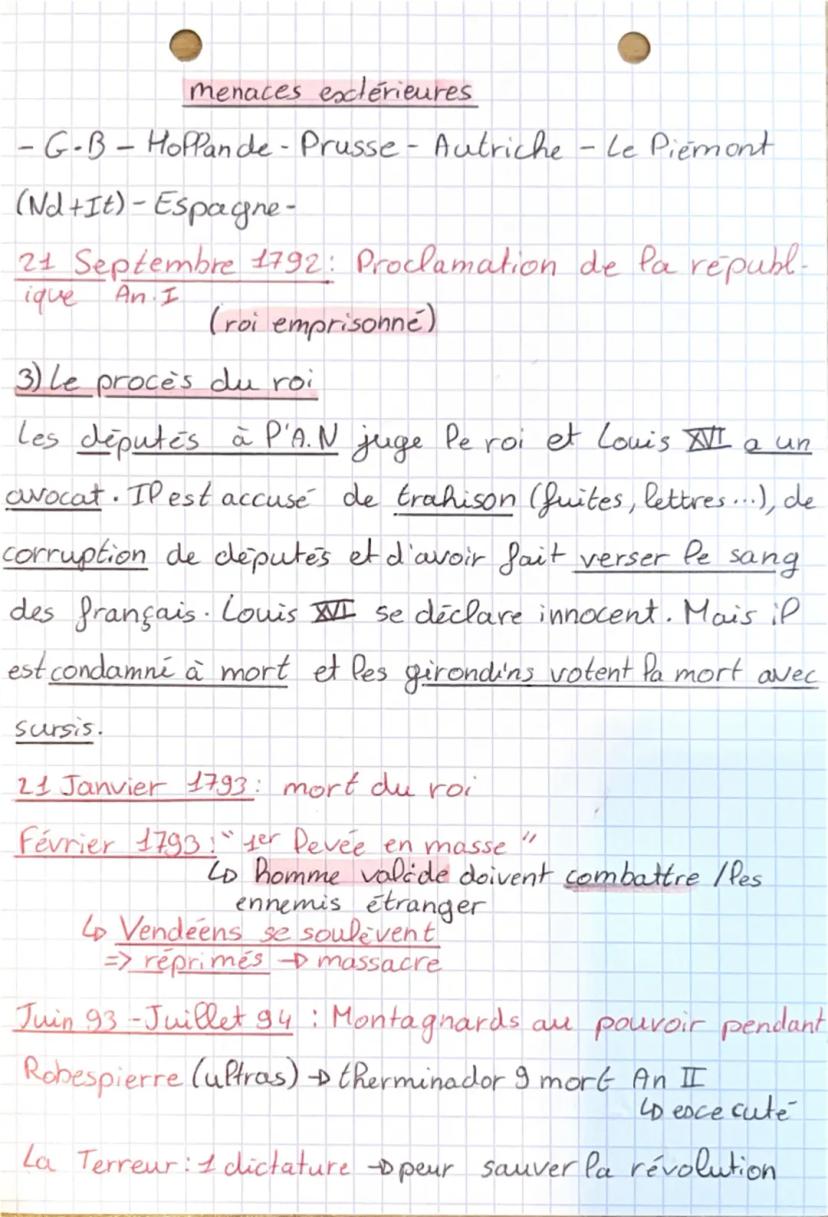 menaces extérieures
- G.B - Hollande - Prusse - Autriche - Le Piémont
(Nd+It) - Espagne -
21 Septembre 1792 : Proclamation de la républ-
ique An.I
(roi emprisonné)
3) Le procès du roi
Les députés à l'A.N juge le roi et Louis XVI a un
avocat. Il est accusé de trahison (fuites, lettres...), de
corruption de députés et d'avoir fait verser le sang
des français. Louis XVI se déclare innocent. Mais il
est condamné à mort et les girondins votent la mort avec
sursis.
21 Janvier 1793 : mort du roi
Février 1793 : " 1er levée en masse "
↳ homme valide doivent combattre / les
ennemis étranger
↳ Vendéens se soulèvent
=> réprimés → massacre
Juin 93 - Juillet 94 : Montagnards au pouvoir pendant
Robespierre (ultras) → therminador 9 mort An II
↳ execcuté
La Terreur : 1 dictature → peur sauver la révolution